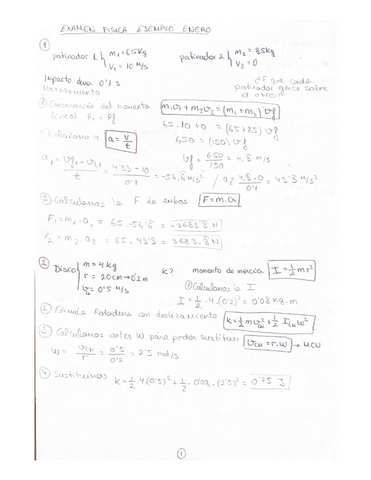 EXAMEN FISICA EJEMPLO ENERO
①
patinador 1 { m₁ = 65kg
v₁ = 10 M/s
patinador 2 { m₂ = 85kg
v₂ = 0
Impacto dura 0'1 s
¿F que cada patinador ejerce sobre el otro?
① Conservación del momento lineal Pi = Pf
m₁v₁ + m₂v₂ = (m₁ + m₂) vf
65·10 + 0 = (65 + 85) vf
650 = (150) vf
vf = 650/150 = 4,3 m/s
Calculamos a a = v/t
a₁ = vf₁ - vi₁ / t = 4'33 - 10 / 0'1 = -56,6 m/s²
a₂ = 4,3 - 0 / 0'1 = 43'3 m/s²
③ Calculamos la F de ambos F = m·a
F₁ = m₁·a₁ = 65·-56'6 = -3683'3 N
F₂ = m₂·a₂ = 85·43'3 = 3683,3 N
② Disco { m = 4 kg
r = 20cm → 0'2m
v = 0'5 M/s
K?
momento de inercia I = ½ m r²
① Calculamos la I
I = ½ · 4 · (0'2)² = 0'08 kg·m
② Fórmula Rotadura con deslizamiento K = ½ m v² + ½ I w²
③ Calculamos antes W para poder sustituir vcm = r·w → MCU
w = vcm / r = 0'5 / 0'2 = 2'5 rad/s
④ Sustituimos K = ½ · 4 (0'5)² + ½ · 0'08 · (2'5)² = 0'75 J
①